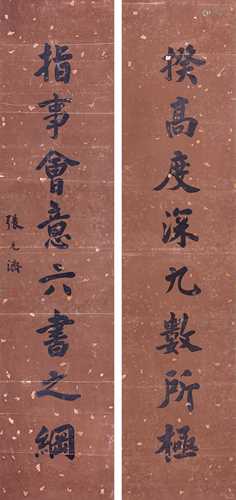 揆高度深九數所極
指事會意六書之綱
張元濟